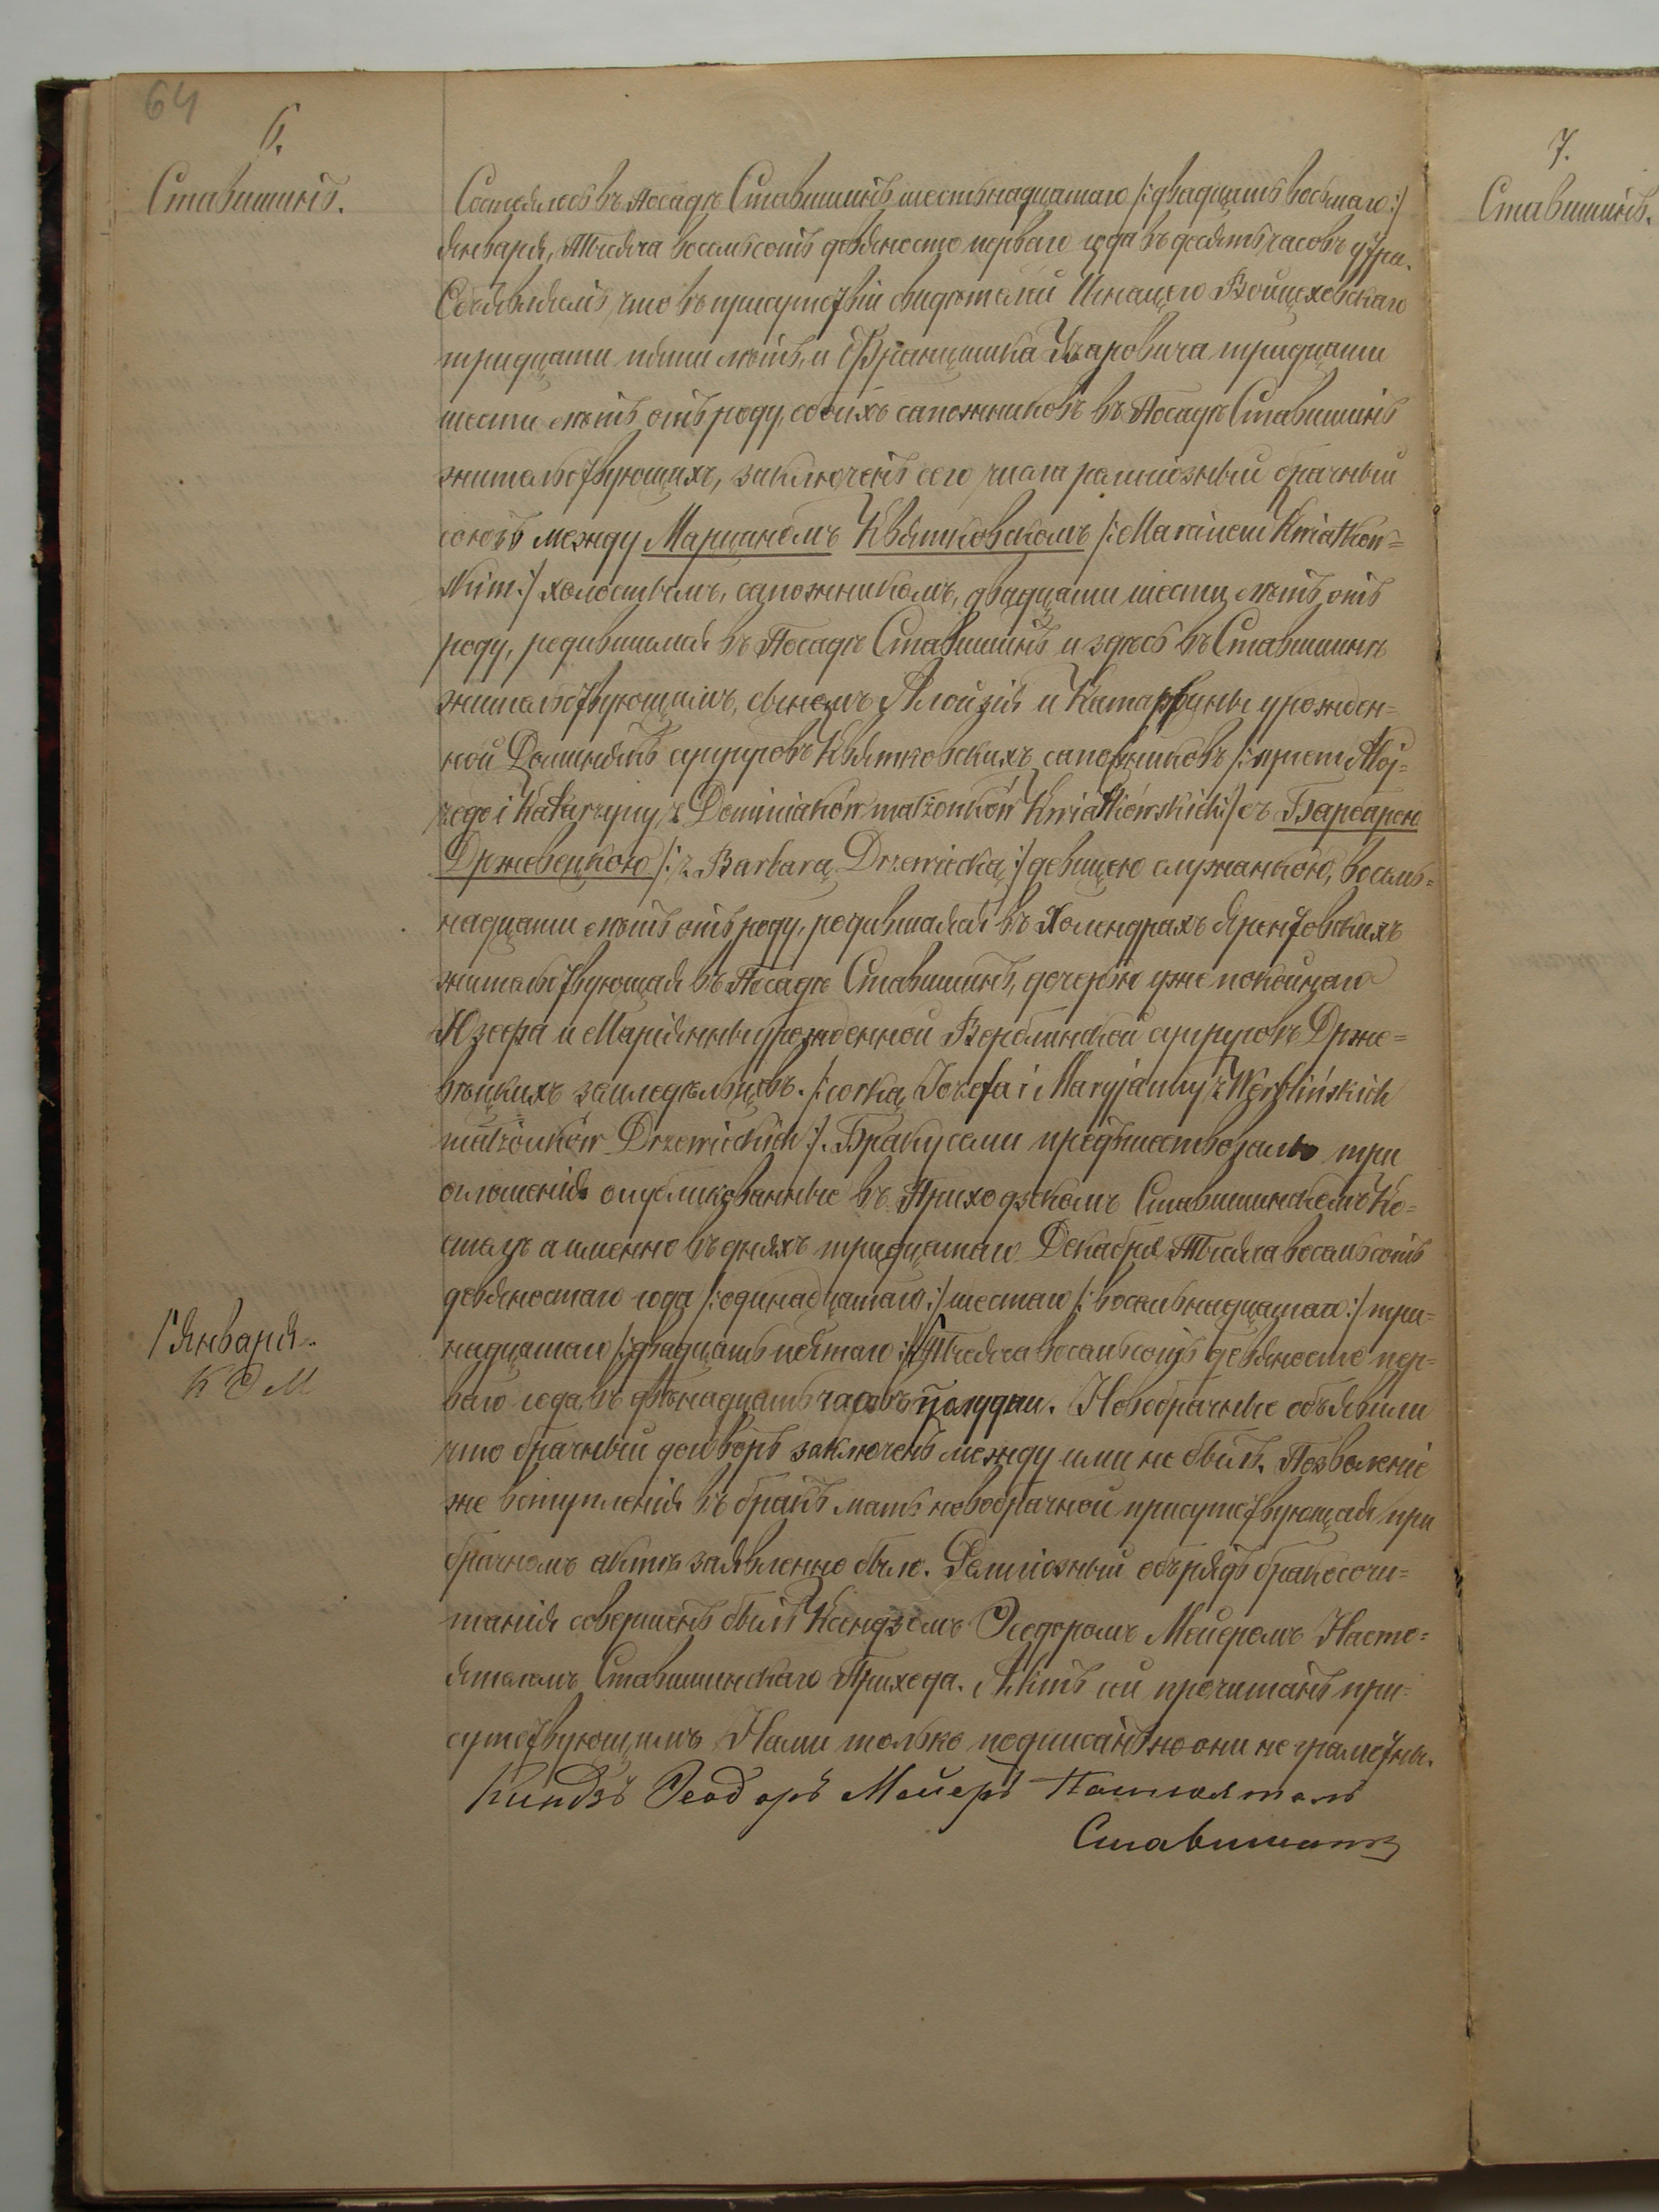 64
6.
Ставишинъ.
Состоялось въ Посадѣ Ставишинъ шестьнадцатаго /:двадцать восьмаго:/
Января, Тысяча восемьсотъ девяносто перваго года въ десять часовъ утра.
Объявляемъ, что въ присутствіи свидѣтелей Игнацего Войцеховскаго
тридцати пяти лѣтъ, и Францишка тридцати
шести лѣтъ отъ роду, обоихъ сапожниковъ въ Посадѣ Ставишинъ
жительствующихъ, заключенъ сего числа религіозный брачный
союзъ между Марцианомъ Квятковскомъ /:Marcinem Kwiatkow=
skim:/ холостымъ, сапожникомъ, двадцати шести лѣтъ отъ
роду, родившимся въ Посадѣ Ставишинъ и здѣсь въ Ставишинѣ
жительствующимъ, сыномъ Алойзія и Катаржины урожден=
ной Доминякъ супруговъ Квятковскихъ сапожниковъ /:synem Aloj=
zego i Katarzyny z Dominiaków małżonków Kwiatkowskich:/ съ Барбарою
Држевецкою /:z Barbarą Drzewiecką:/ девицею служанкою, восемь=
надцати лѣтъ отъ роду, родившаяся въ Холендрахъ
жительствующая въ Посадѣ Ставишинъ, дочерью уже покойнаго
Юзефа и Маріянны урожденной Верблинской супруговъ Држе=
вецкихъ земледѣльцевъ. /:córką Józefa i Maryjanny z Werblińskich
małżonków Drzewieckich:/. Браку сему предшествовали три
оглашенія опубликованные въ Приходскомъ Ставишинскомъ Ко=
стелѣ а именно въ дняхъ тридцатаго Декабря Тысяча восемьсотъ
девяностаго года /:одинадцатаго:/ шестаго /:восемьнадцатаго:/ три=
надцатаго /:двадцать пятаго:/ Тысяча восемьсотъ девяносто пер=
ваго года въ двѣнадцать часовъ полудни. Новобрачные объявили
что брачный договоръ заключенъ между ими не былъ. Позволеніе
же вступленія въ бракъ мать новобрачной присутствующая при
брачномъ актѣ заявленно было. Религіозный обърядъ бракосочи=
танія совершенъ былъ Ксендзомъ Ѳеодоромъ Мейеромъ Насто=
ятелемъ Ставишинскаго Прихода. Актъ сей прочитанъ при=
сутствующимъ Нами только подписанъ ибо они не грамотны.
Ксендзъ Ѳеодоръ Мейеръ Настоятель
Ставишинъ
Января.
К Ѳ М
7.
Ставишинъ.